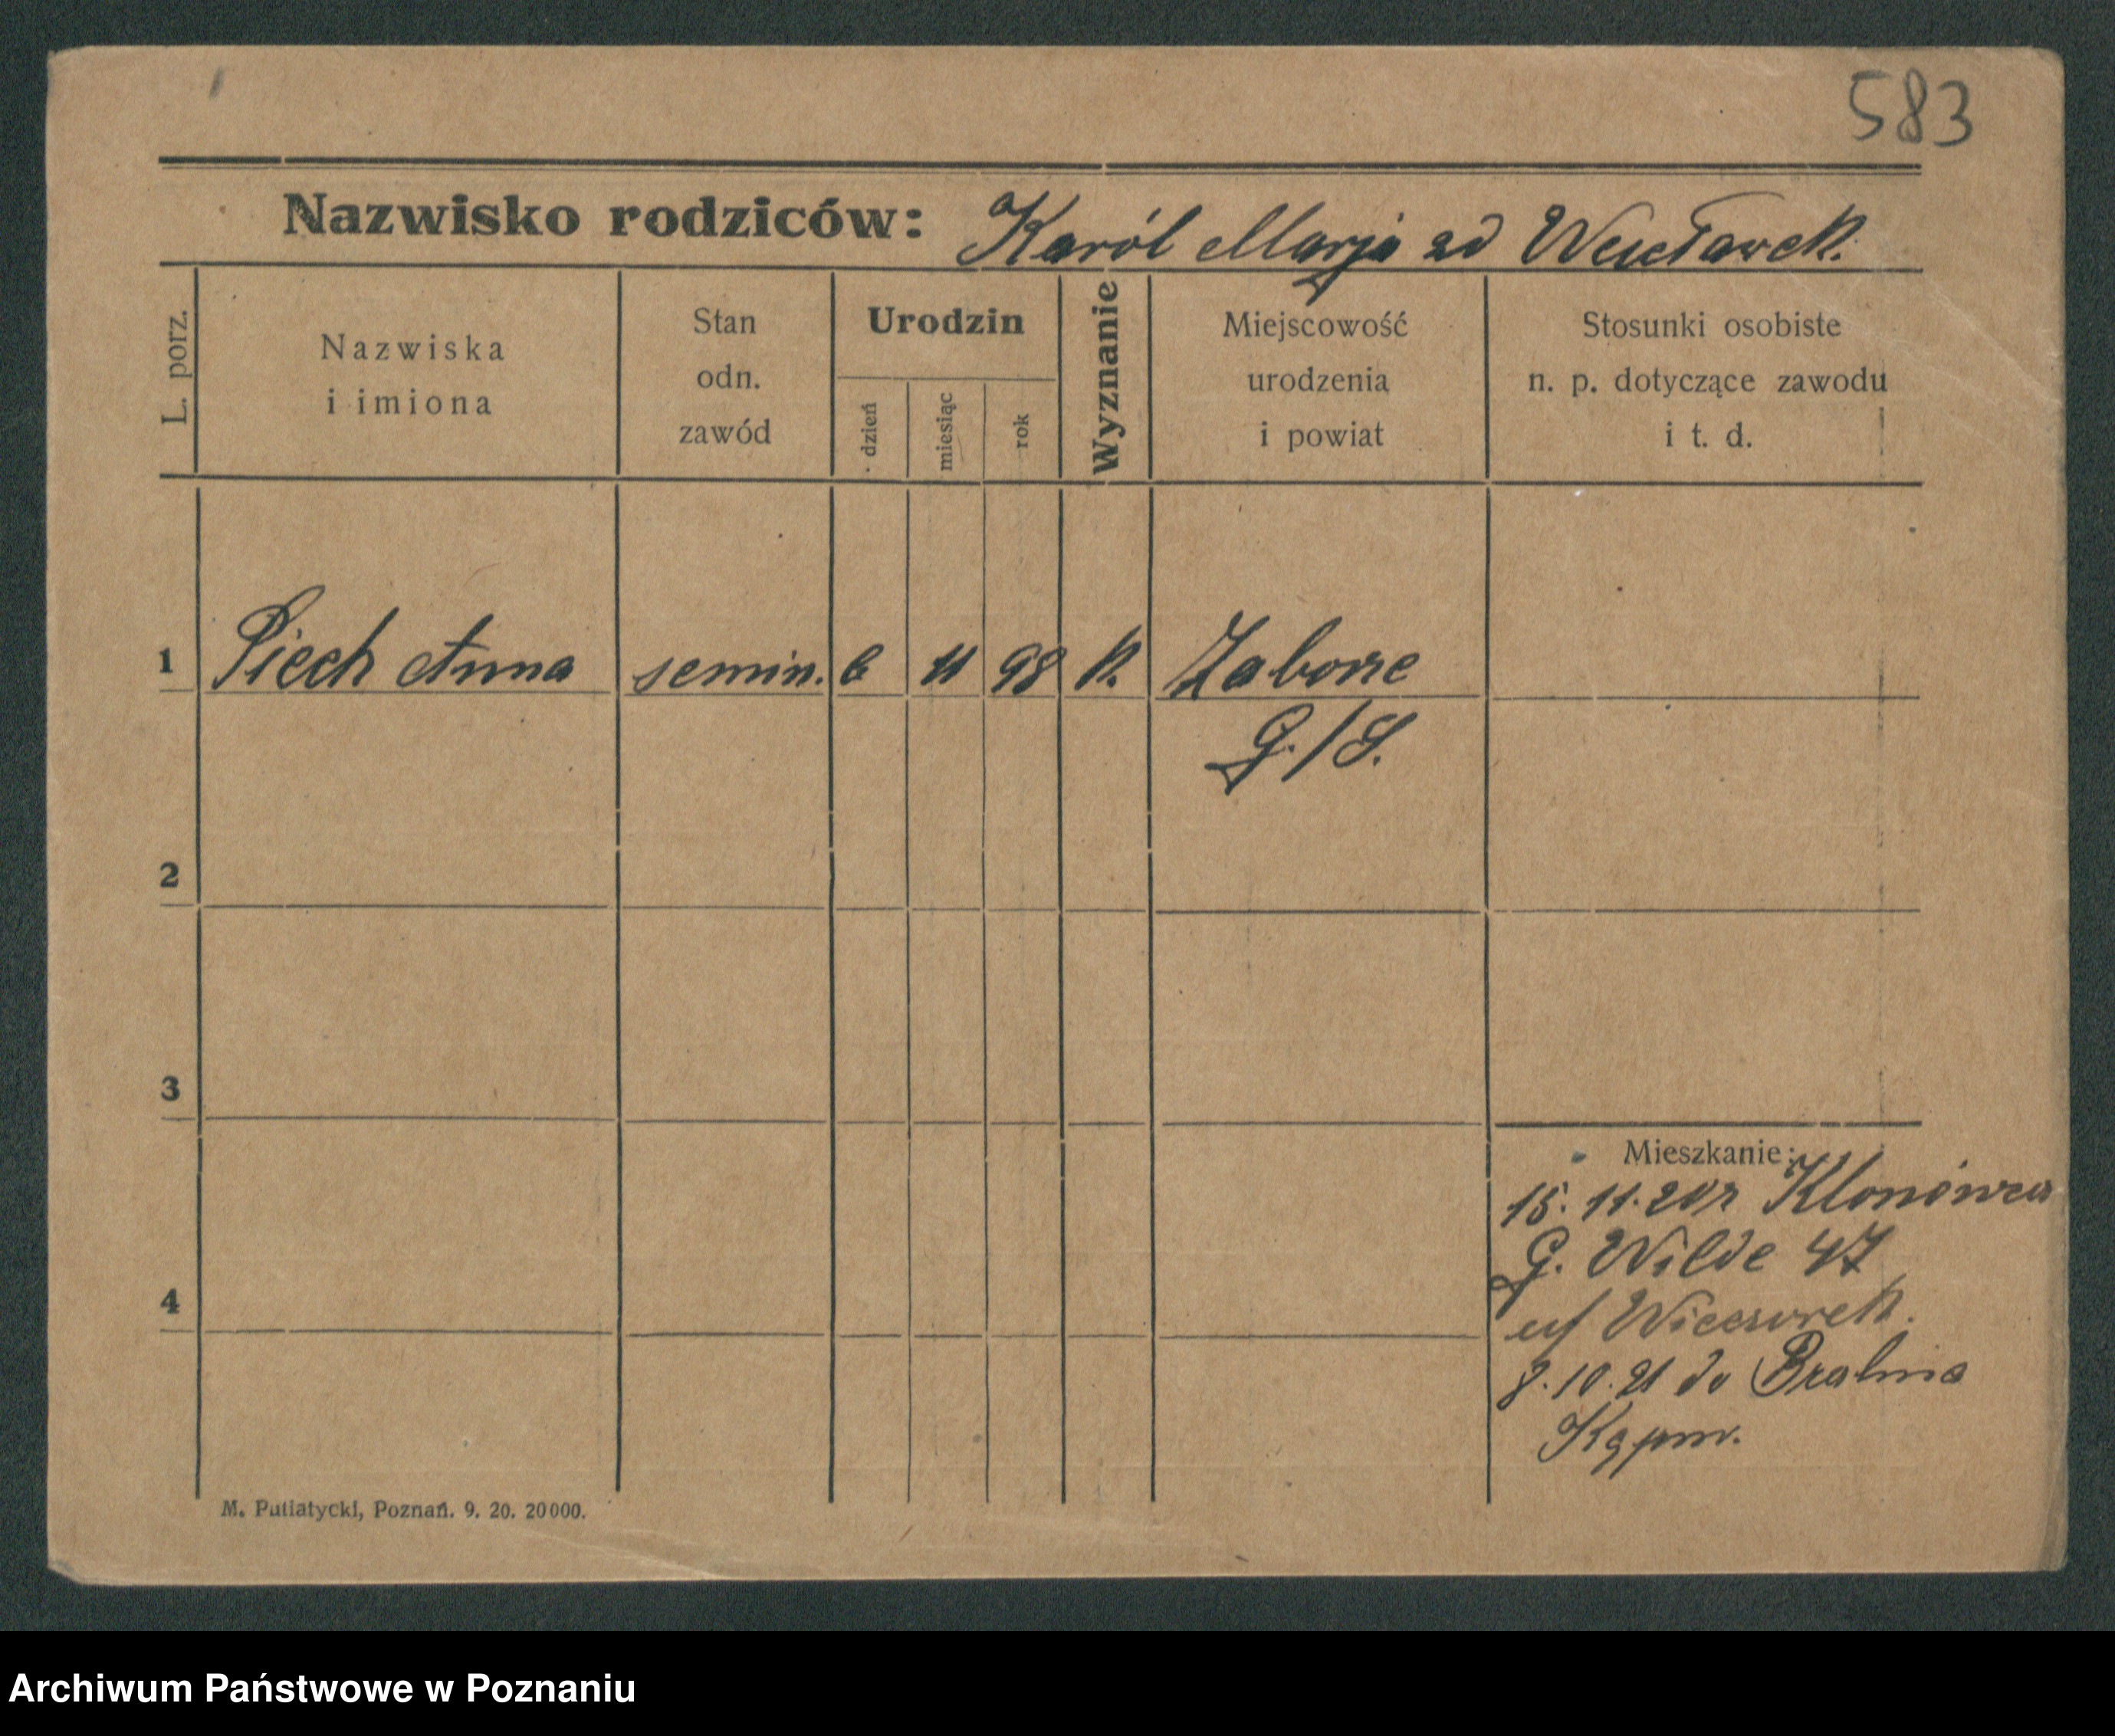 583
Nazwisko rodziców: Karól Marja zd
L. porz.
Nazwiska
i imiona
Stan
odn.
zawód
Urodzin
dzień
miesiąc
rok
Wyznanie
Miejscowość
urodzenia
i powiat
Stosunki osobiste
n. p. dotyczące zawodu
i t. d.
1 Piech Anna semin. 6 11 98 k. Zaborze
G./S.
2
3
4
Mieszkanie:
15. 11. 20 z
G. Wilde 47
Wieczorek.
8. 10. 21 do Bralina
M. Putiatycki, Poznań. 9. 20. 20000.
Archiwum Państwowe w Poznaniu